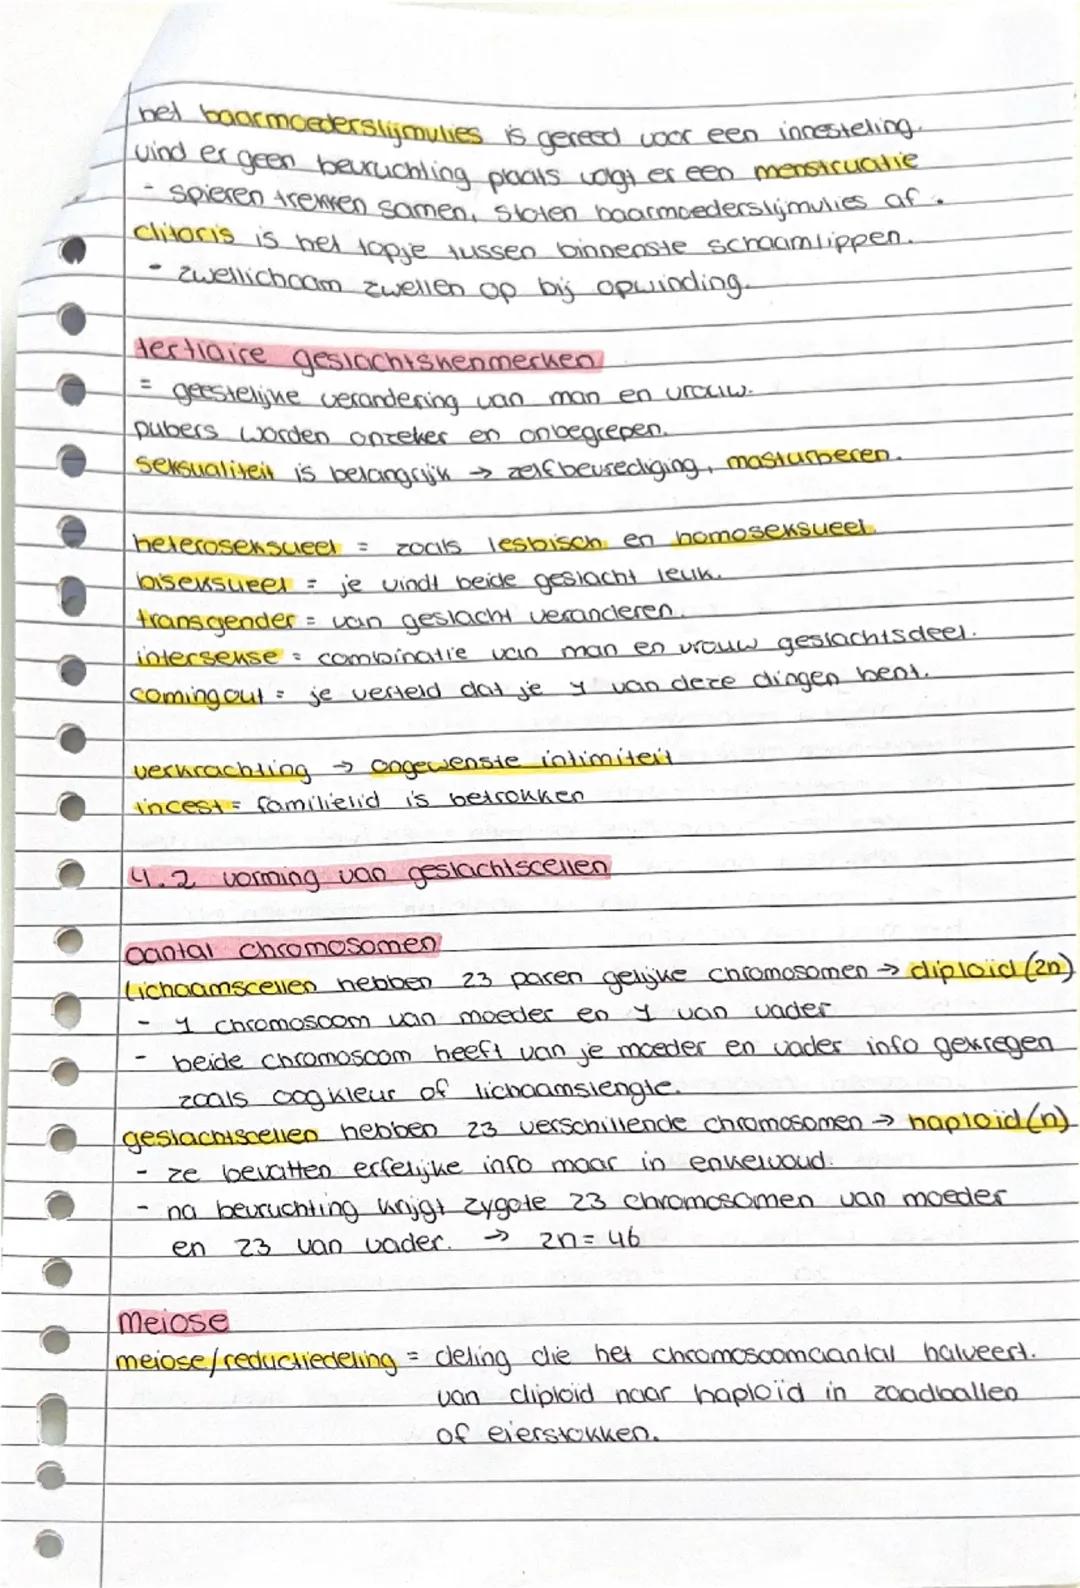 het baarmoederslijmvlies is gereed voor een innesteling.
vind er geen bevruchting plaats volgt er een menstruatie
- spieren trekken samen, stoten baarmoederslijmvlies af.
clitoris is het topje tussen binnenste schaamlippen.
- zwellichaam zwellen op bij opwinding.
tertiaire geslachtskenmerken
= geestelijke verandering van man en vrouw.
pubers worden onzeker en onbegrepen.
seksualiteit is belangrijk → zelfbevrediging, masturberen.
heteroseksueel = zoals lesbisch en homoseksueel.
biseksueel = je vindt beide geslacht leuk.
transgender = van geslacht veranderen.
intersekse = combinatie van man en vrouw geslachtsdeel.
coming out = je verteld dat je 1 van deze dingen bent.
verkrachting → ongewenste intimiteit
incest = familielid is betrokken
4.2 vorming van geslachtscellen
aantal chromosomen
lichaamscellen hebben 23 paren gelijke chromosomen → diploïd (2n)
- 1 chromosoom van moeder en 1 van vader
- beide chromosoom heeft van je moeder en vader info gekregen
zoals oogkleur of lichaamslengte.
geslachtscellen hebben 23 verschillende chromosomen → haploïd (n)
- ze bevatten erfelijke info maar in enkelvoud.
- na bevruchting krijgt zygote 23 chromosomen van moeder
en 23 van vader. → 2n = 46
meiose
meiose/reductiedeling = deling die het chromosoomaantal halveert.
van diploïd naar haploïd in zaadballen
of eierstokken.